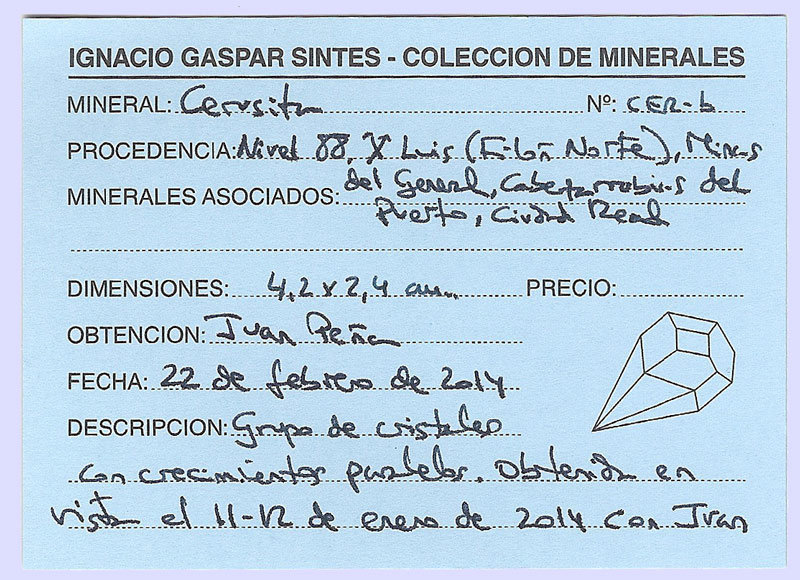 IGNACIO GASPAR SINTES - COLECCION DE MINERALES
MINERAL: Cerusita Nº: CER-b
PROCEDENCIA: Nivel 88, X Luis (Filón Norte), Minas
MINERALES ASOCIADOS: del General, Cabezarrubias del
Puerto, Ciudad Real
DIMENSIONES: 4,2 x 2,4 cm. PRECIO:
OBTENCION: Juan Peña
FECHA: 22 de febrero de 2014
DESCRIPCION: Grupo de cristales
con crecimientos paralelos. Obtenida en
visita el 11-12 de enero de 2014 con Juan